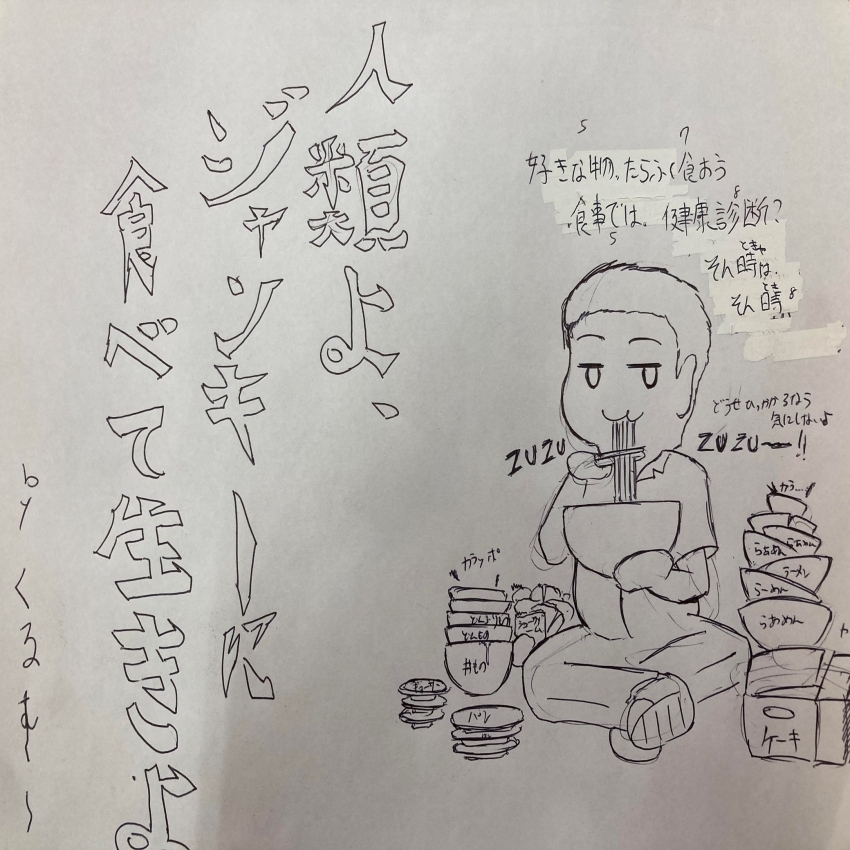 人類よ、
ジャンキーに
食べて生きよ
by くるむ〜
5
7
好きな物、たらふく食おう
8
食事では、健康診断?
5
ときゃ
そん時は、
とき
そん時 8
どうせひっかかるなら
気にしないよ
ZUZU
ZUZU〜!!
カラッポ
どんぶりもの
どんもの
丼もの
シュークリーム
パン
カラ…
らぁめん
らぁめん
ラーメン
らーめん
らあめん
ケーキ